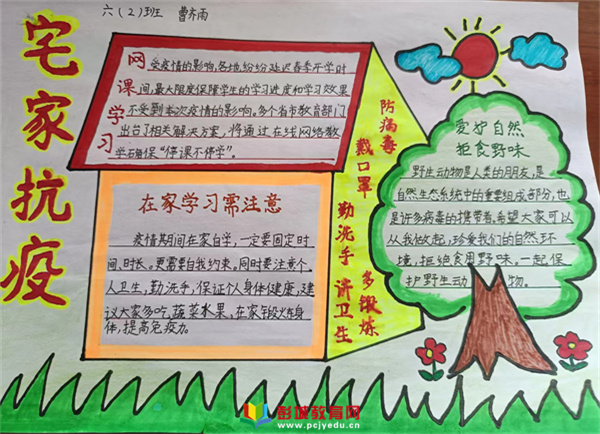 六(2)班 曹齐雨
宅家抗疫
网课学习
受疫情的影响,各地纷纷延迟春季开学时
间,最大限度保障学生的学习进度和学习效果
不受到本次疫情的影响。多个省市教育部门
出台了相关解决方案,将通过在线网络教
学确保“停课不停学”。
在家学习需注意
疫情期间在家自学,一定要固定时
间、时长。更需要自我约束。同时要注意个
人卫生,勤洗手,保证个人身体健康,建
议大家多吃,蔬菜水果、在家锻炼身
体,提高免疫力
防病毒
戴口罩
勤洗手
讲卫生
多锻炼
爱护自然
拒食野味
野生动物是人类的朋友,是
自然生态系统中的重要组成部分,也
是许多病毒的携带者,希望大家可以
从我做起,珍爱我们的自然环
境,拒绝食用野味,一起保
护野生动物。
彭坡教育网
www.pcjyedu.cn